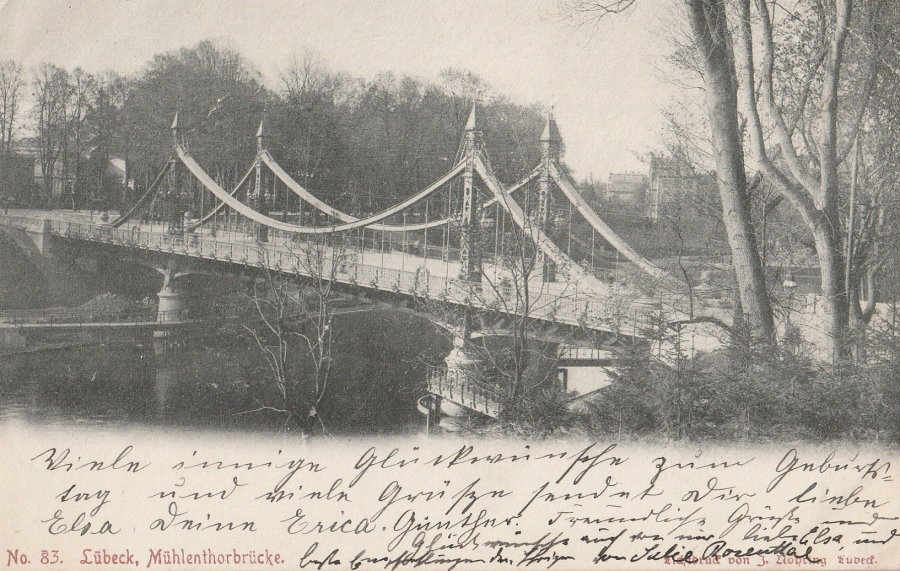 Viele innige Glückwünsche zum Geburts=
tag und viele Grüsze sendet Dir liebe
Elsa. Deine Erica. Günther. Freundliche Grüsze und
Glückwünsche auch von mir, liebe Elsa, und
beste Empfehlungen den Ihrigen von Julie Rosenthal
No. 83. Lübeck, Mühlenthorbrücke.
Lichtdruck von J. Nöhring Lübeck.